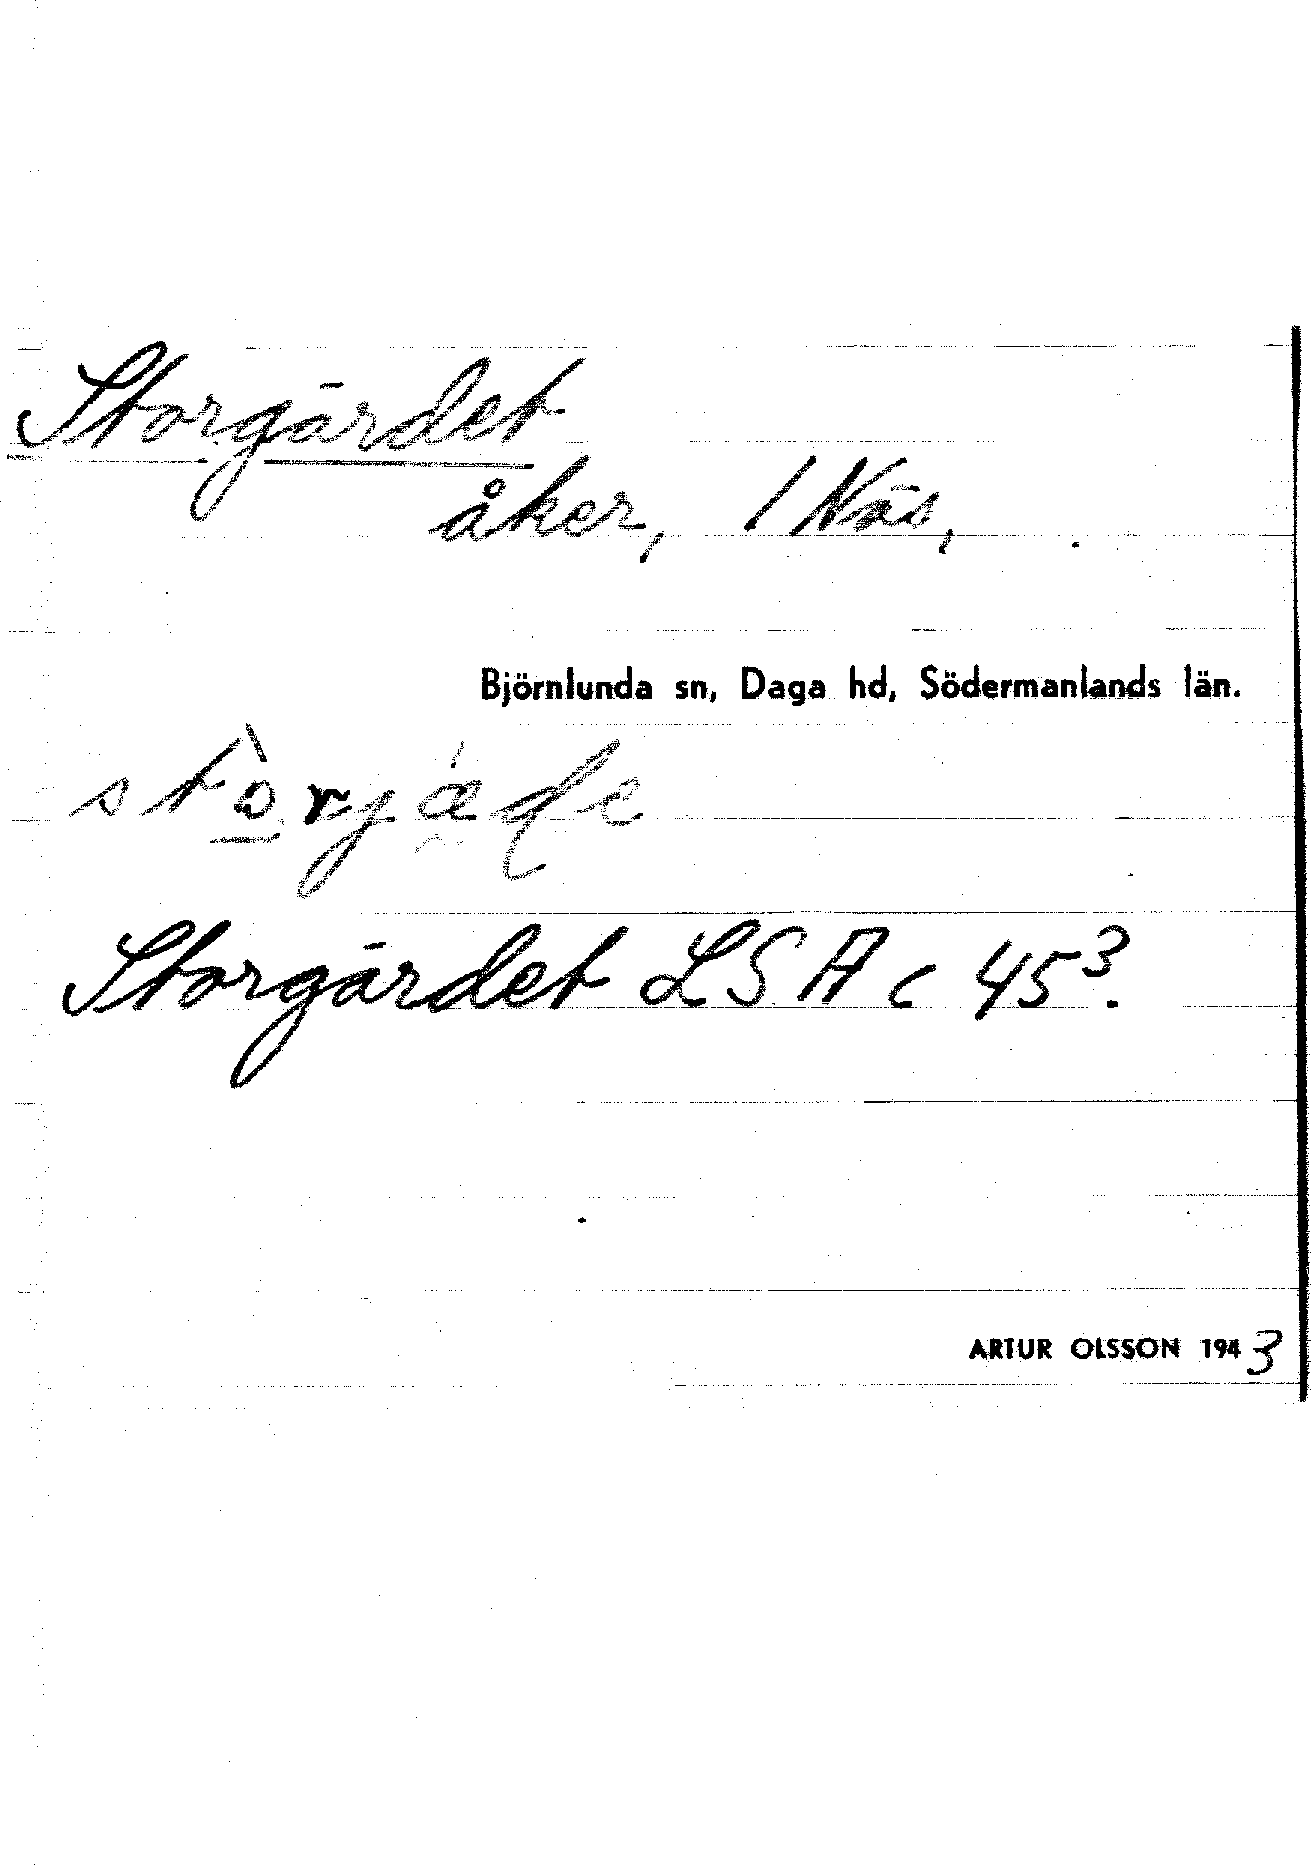 Storgärdet
åker, 1 Näs,
Björnlunda sn, Daga hd, Södermanlands län.
stòrjáde
Storgärdet LSA c 45³.
ARTUR OLSSON 1943